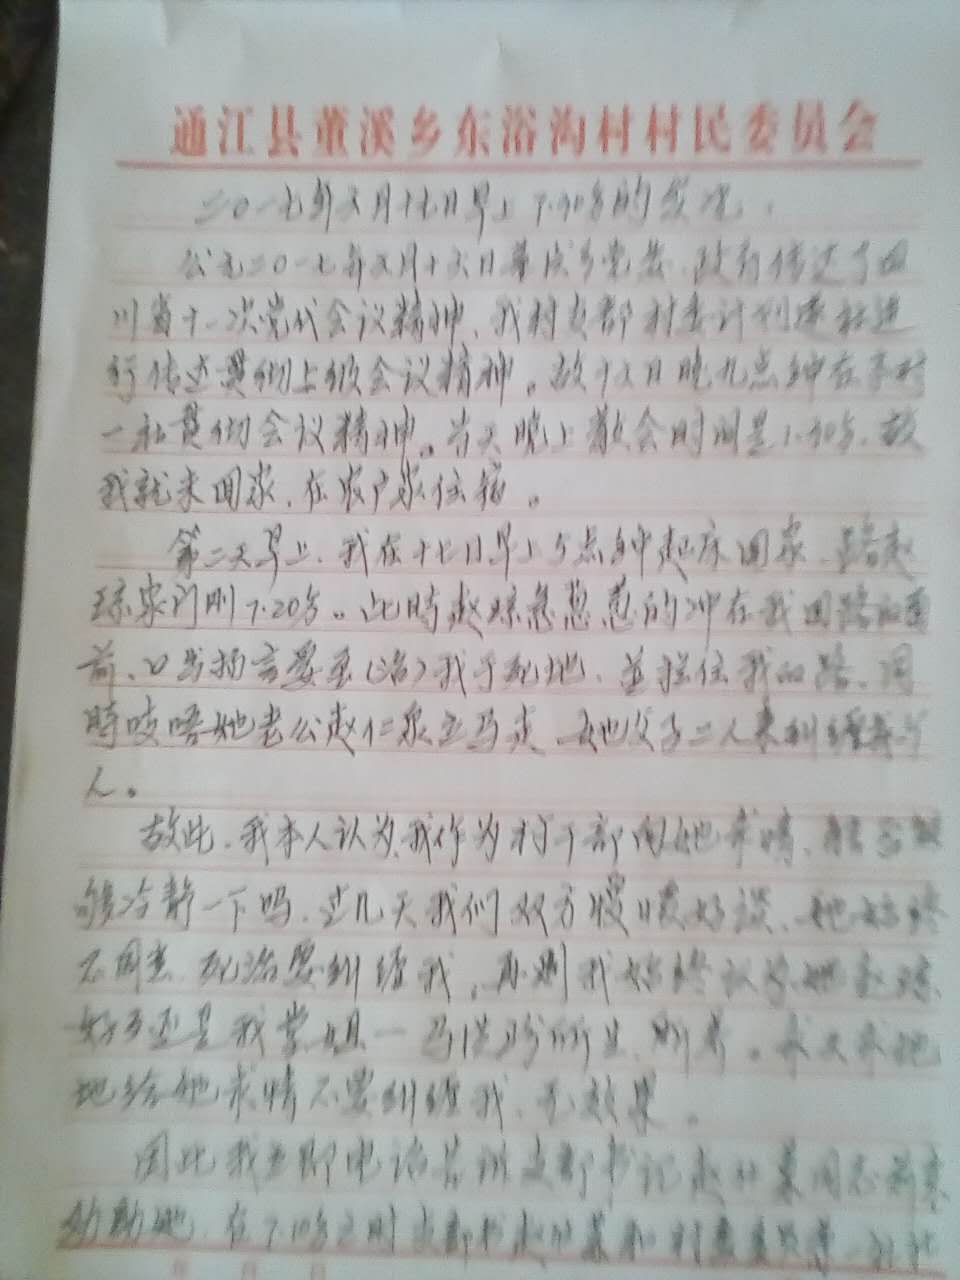 通江县董溪乡东浴沟村村民委员会
二〇一七年五月十七日早上7.30分的实况
公元二〇一七年五月十六日董溪乡党委、政府传达了四
川省十一次党代会议精神、我村支部村委计划逐社进
行传达贯彻上级会议精神。故十六日晚九点钟在
一社贯彻会议精神。当天晚上散会时间是1.30分、故
我就未回家、在农户家住宿。
第二天早上、我在十七日早上5点钟起床回家、路赵
琼家门刚7.20分。此时赵琼急忽忽的冲在我回路的面
前、口出扬言要至(治)我于死地、并拦住我的路、同
时唆唔她老公赵仁泉、她父子二人来纠缠我
人。
故此、我本人认为、我作为村干部向她求情、能否
够冷静一下吗、过几天我们双方慢慢好谈、她始终
不同意、死活要纠缠我、再则我始终认为她赵琼
好歹还是我堂姐一马洪珍所生、所养。求天求地
地给她求情不要纠缠我、无效果。
因此我立即电话告诉支部书记赵仕美同志前来
劝劝她、在7.40分之时支部书赵仕美和村委